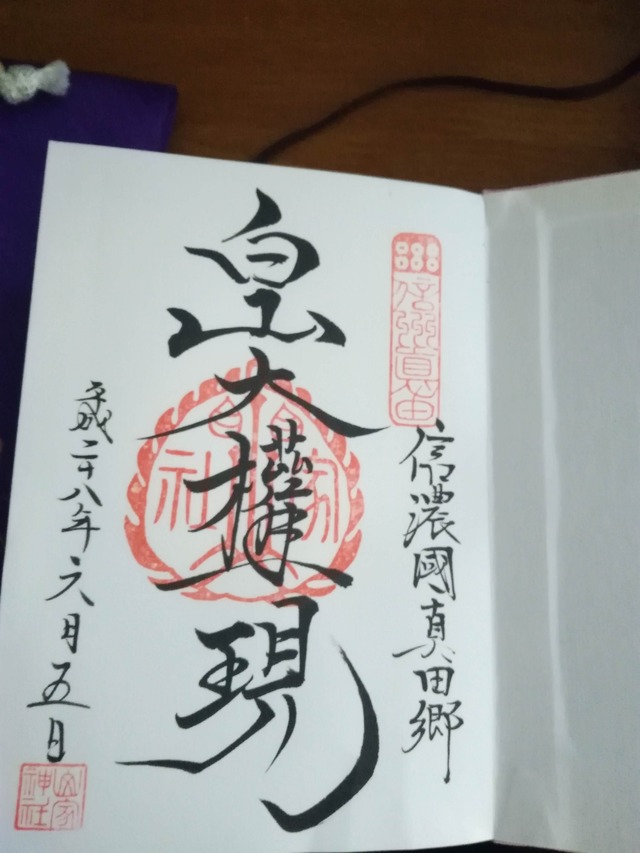 信州真田
信濃國真田郷
白山大權現
平成二十八年六月五日
山家
神社